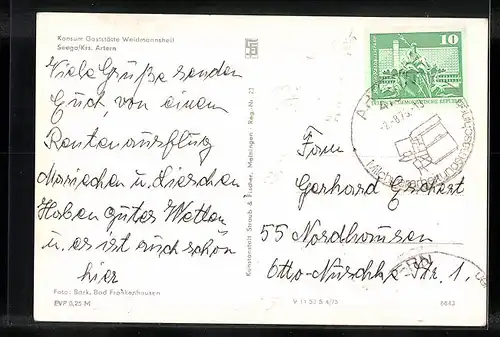 Konsum Gaststätte Weidmannsheil
Seega/Krs. Artern
Viele Grüße senden
Euch, von einem
Rentenausflug
Mariechen u. Lieschen
Haben gutes Wetter
u. es ist auch schön
hier
Foto: Bark, Bad Frankenhausen
EVP 0,25 M
Kunstanstalt Straub & Fischer, Meiningen Reg.-Nr. 23
V 11 52 S 4/75
6643
10
DEUTSCHE DEMOKRATISCHE REPUBLIK
Fam.
Gerhard
55 Nordhausen
Otto-Nuschke-Str. 1.